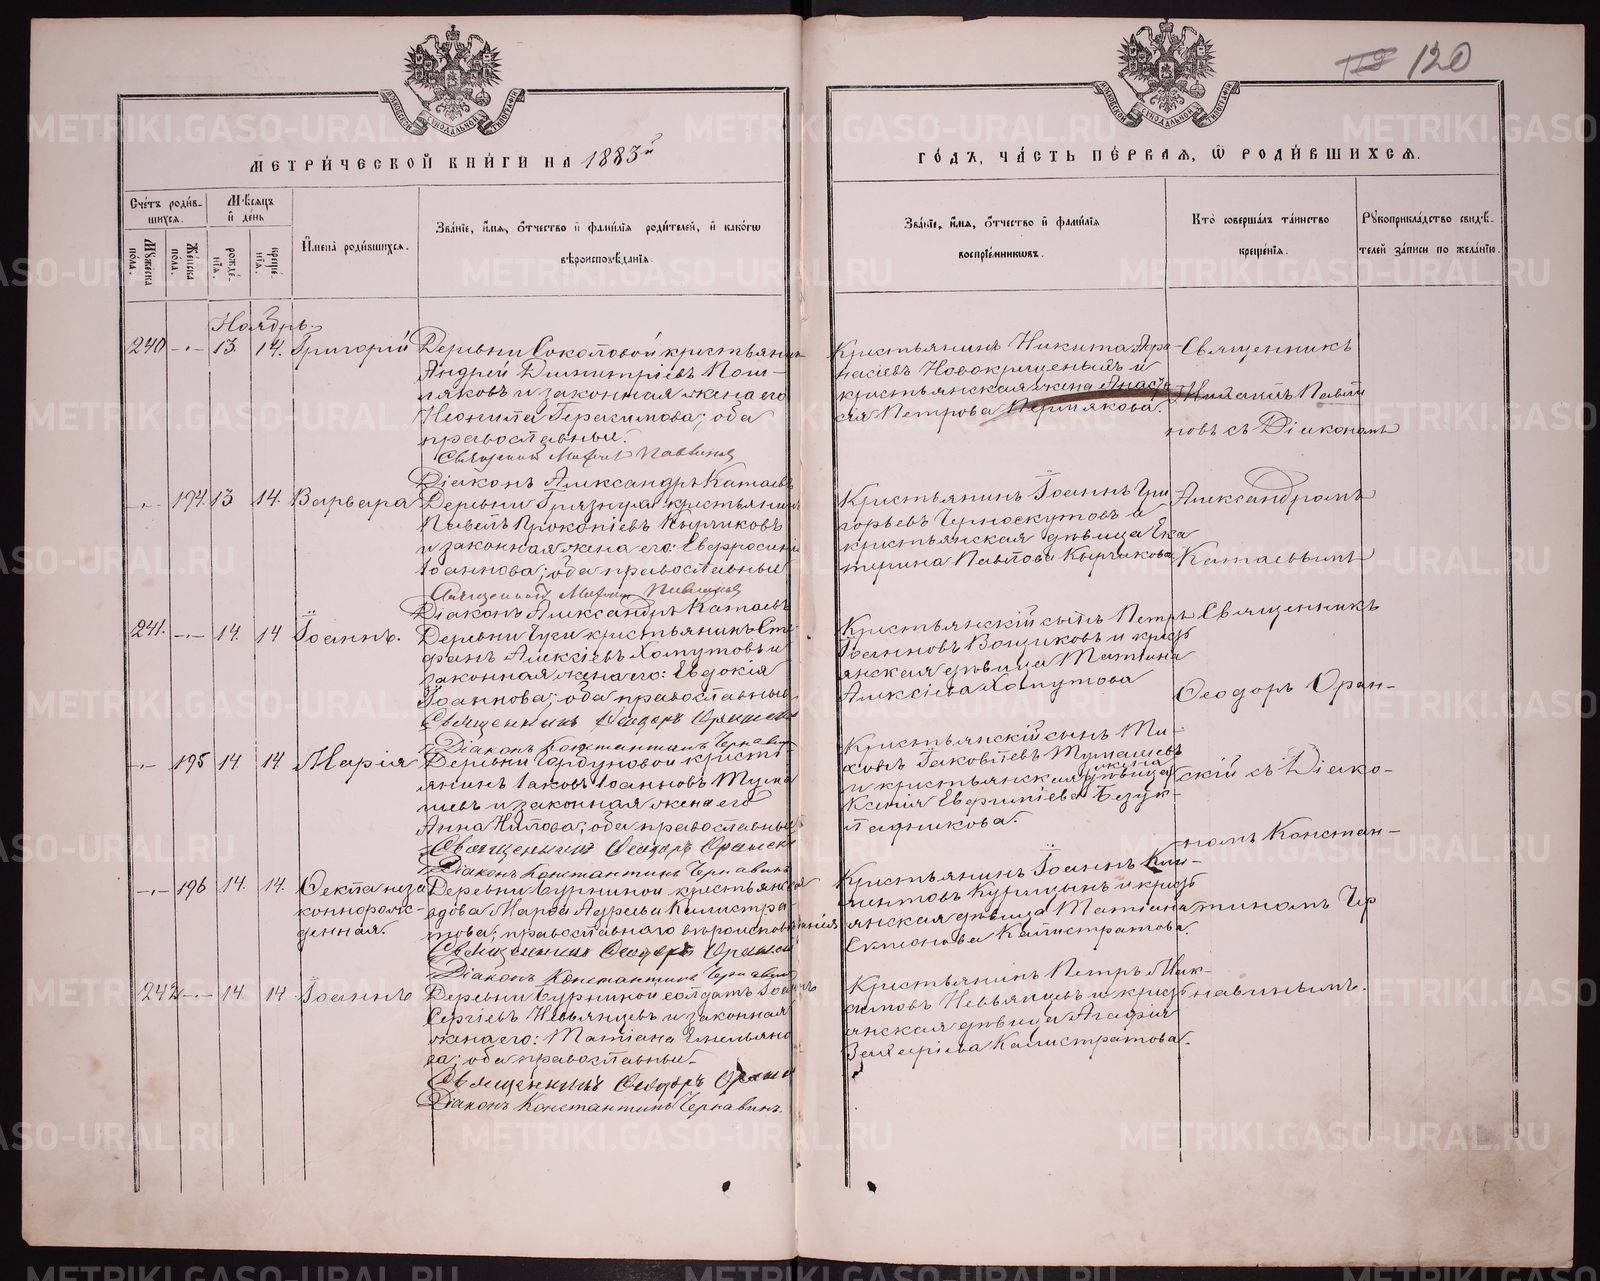 120
МОСКОВСКОЙ СѴНОДАЛЬНОЙ ТИПОГРАФІИ
МОСКОВСКОЙ СѴНОДАЛЬНОЙ ТИПОГРАФІИ
МЕТРИЧЕСКОЙ КНИГИ НА 1883й
ГОДЪ, ЧАСТЬ ПЕРВАЯ, Ѡ РОДИВШИХСЯ.
Счетъ родившихся.
Мужеска пола.
Женска пола.
Мѣсяцъ и день
рожденія.
крещенія.
Имена родившихся.
Званіе, имя, отчество и фамилія родителей, и какогω
вѣроисповѣданія.
Званіе, имя, отчество и фамилія
воспріемникωвъ.
Кто совершалъ таинство
крещенія.
Рукоприкладство свидѣ-
телей записи по желанію.
Ноябрь.
240 -"- 13. 14. Григорій
Деревни Соколовой крестьянинъ
Андрей Димитріевъ Пош-
ляковъ и законная жена его
Неонила Герасимова; оба
православные.
Священникъ Михаилъ Павлиновъ
Діаконъ Александръ Катаевъ
Крестьянинъ Никита Афа-
насіевъ Новокрещеныхъ и
крестьянская жена Анаста-
сія Петрова Пермякова.
Священникъ
Михаилъ Павли
новъ съ Діакономъ
-"- 194. 13 14. Варвара
Деревни Грязнухи крестьянинъ
Павелъ Прокопіевъ Кырчиковъ
и законная жена его: Евфросинія
Іоаннова; оба православные
Священникъ Михаилъ Павлиновъ
Діаконъ Александръ Катаевъ
Крестьянинъ Іоаннъ Гри
горьевъ Черноскутовъ и
крестьянская дѣвица Ека
терина Павлова Кырчикова
Александромъ
Катаевымъ
241. -"- 14. 14 Іоаннъ.
Деревни Чуси крестьянинъ Сте-
фанъ Алексіевъ Хомутовъ и
законная жена его: Евдокія
Іоаннова; оба православные
Священникъ Ѳеодоръ Оранскій
Діаконъ Константинъ Чернавинъ
Крестьянскій сынъ Петръ
Іоанновъ Вощиковъ и кресть
янская дѣвица Татіана
Алексіева Хомутова
Священникъ
Ѳеодоръ Оран-
-"- 195 14 14 Марія
янинъ Іаковъ Іоанновъ Тума
шевъ и законная жена его
Анна Нилова; оба православные
Священникъ Ѳеодоръ Оранскій
Діаконъ Константинъ Чернавинъ
Крестьянскій сынъ Ти-
хонъ Іаковлевъ Тумашевъ
жена
и крестьянская дѣвица
Ксенія Евфиміева Безук-
ладникова.
скій съ Діако-
номъ Констан-
-"- 196 14. 14. Ѳекла неза
коннорож-
денная.
Деревни Бурниной крестьянская
вдова Марѳа Андреева Калистра-
това; православнаго вѣроисповѣданія
Священникъ Ѳеодоръ Оранскій
Діаконъ Константинъ Чернавинъ
Крестьянинъ Іоаннъ Кли-
ментовъ Курицынъ и кресть
янская дѣвица Татіана
Семенова Калистратова.
тиномъ Чер
242 -"- 14. 14 Іоаннъ
Деревни Бурниной солдатъ Іоаннъ
Сергіевъ Невьянцевъ и законная
жена его: Татіана Емельяно
ва; оба православные.
Священникъ Ѳеодоръ Оранскій
Діаконъ Константинъ Чернавинъ.
Крестьянинъ Петръ Мак-
симовъ Невьянцевъ и кресть
янская дѣвица Агафія
Захаріева Калистратова.
навинымъ.